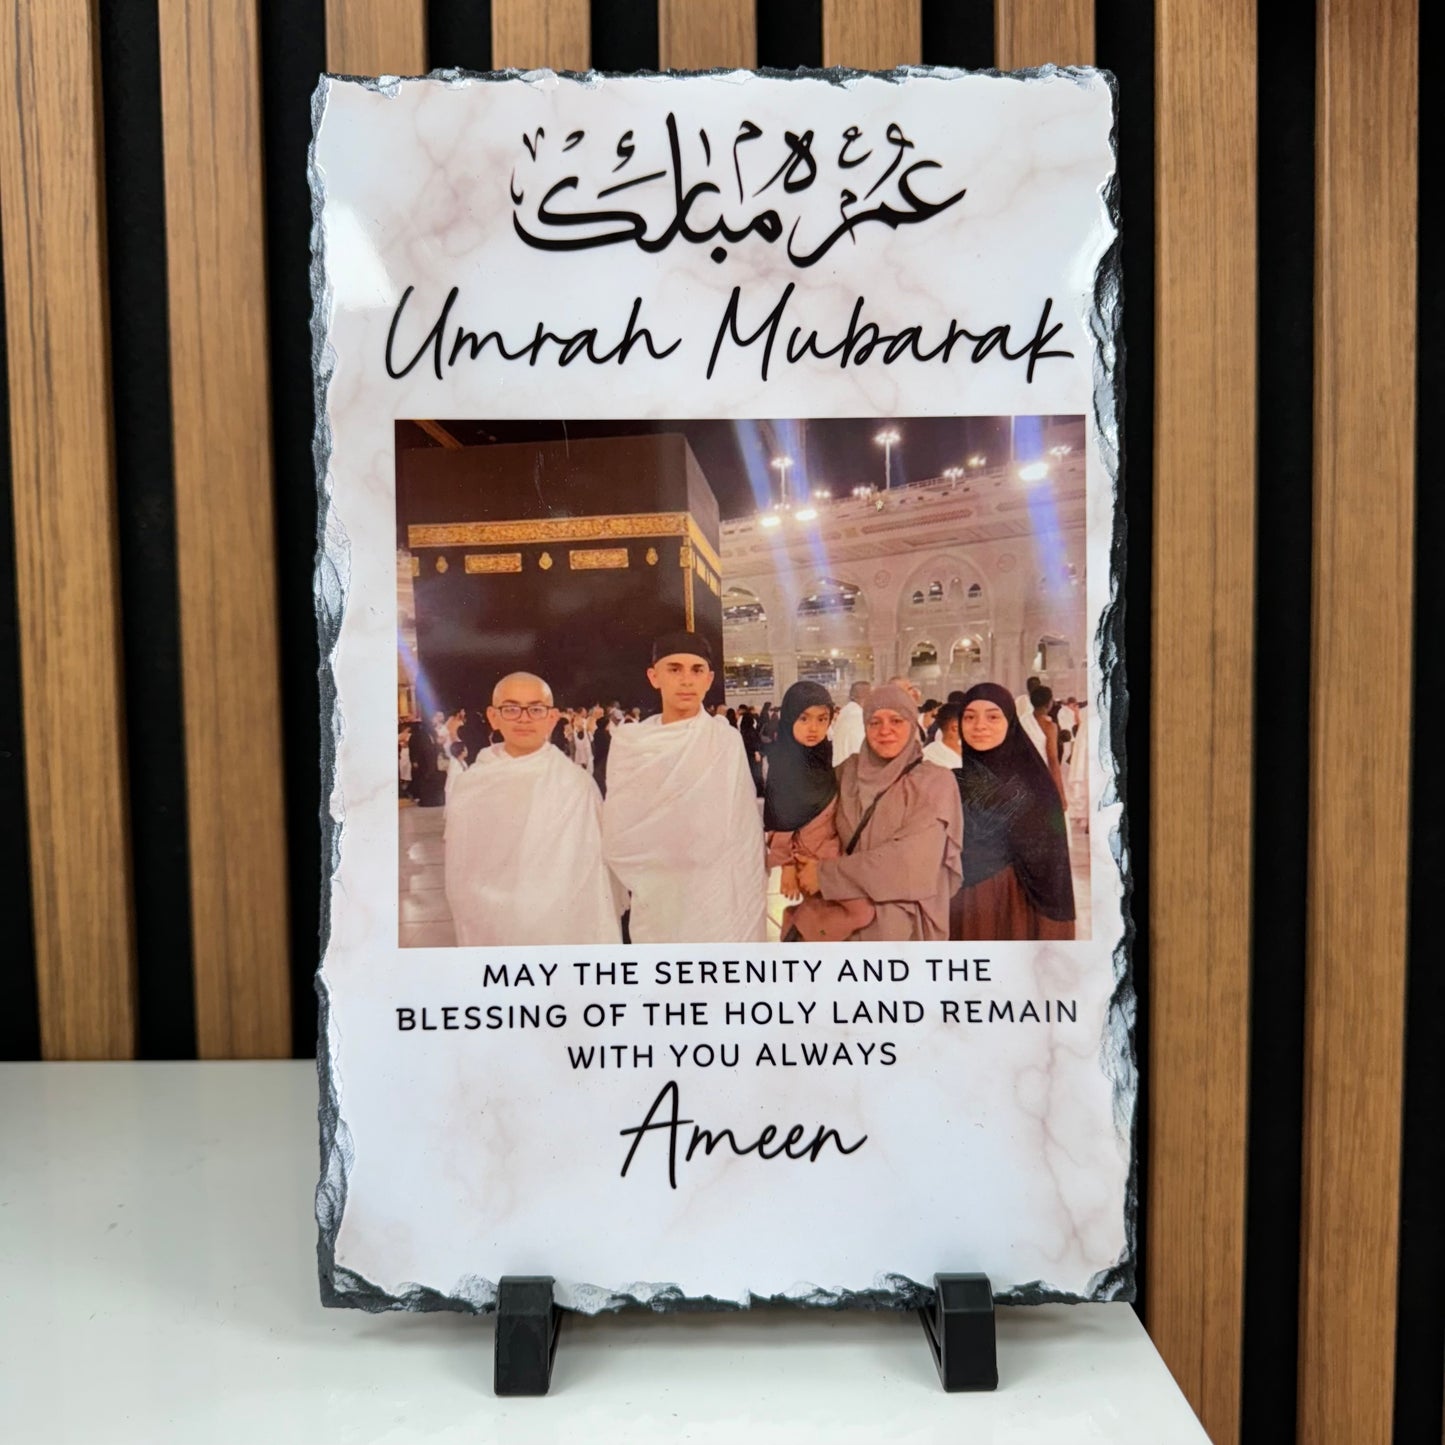 عمرة مبارك
Umrah Mubarak
MAY THE SERENITY AND THE
BLESSING OF THE HOLY LAND REMAIN
WITH YOU ALWAYS
Ameen